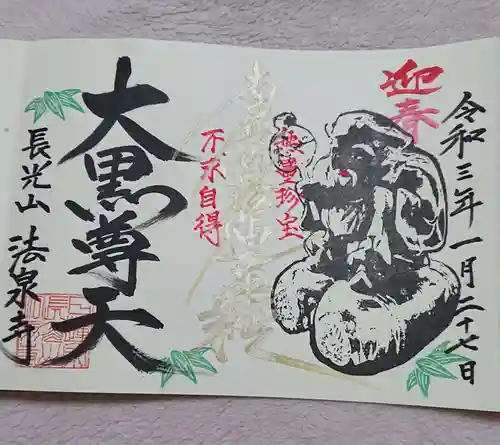 迎春
令和三年一月二十七日
無量珍宝
不求自得
大黒尊天
長光山 法泉寺